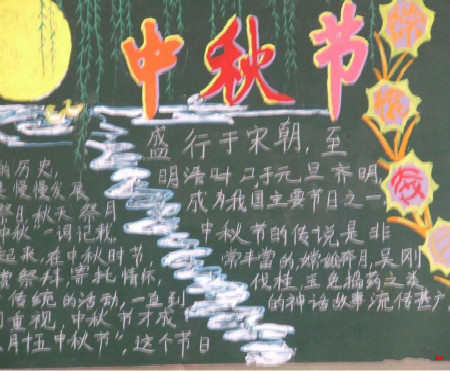 中秋节
的历史,
是慢慢发展
祭日,秋天祭月
中秋一词记载
起来,在中秋时节,
赏祭拜,寄托情怀,
传统的活动,一直到
重视,中秋节才成
月十五中秋节",这个节日
盛行于宋朝,至
明清时,与元旦齐明,
成为我国主要节日之一
中秋节的传说是非
常丰富的,嫦娥奔月,吴刚
伐桂,玉兔捣药之类
的神话故事流传甚广